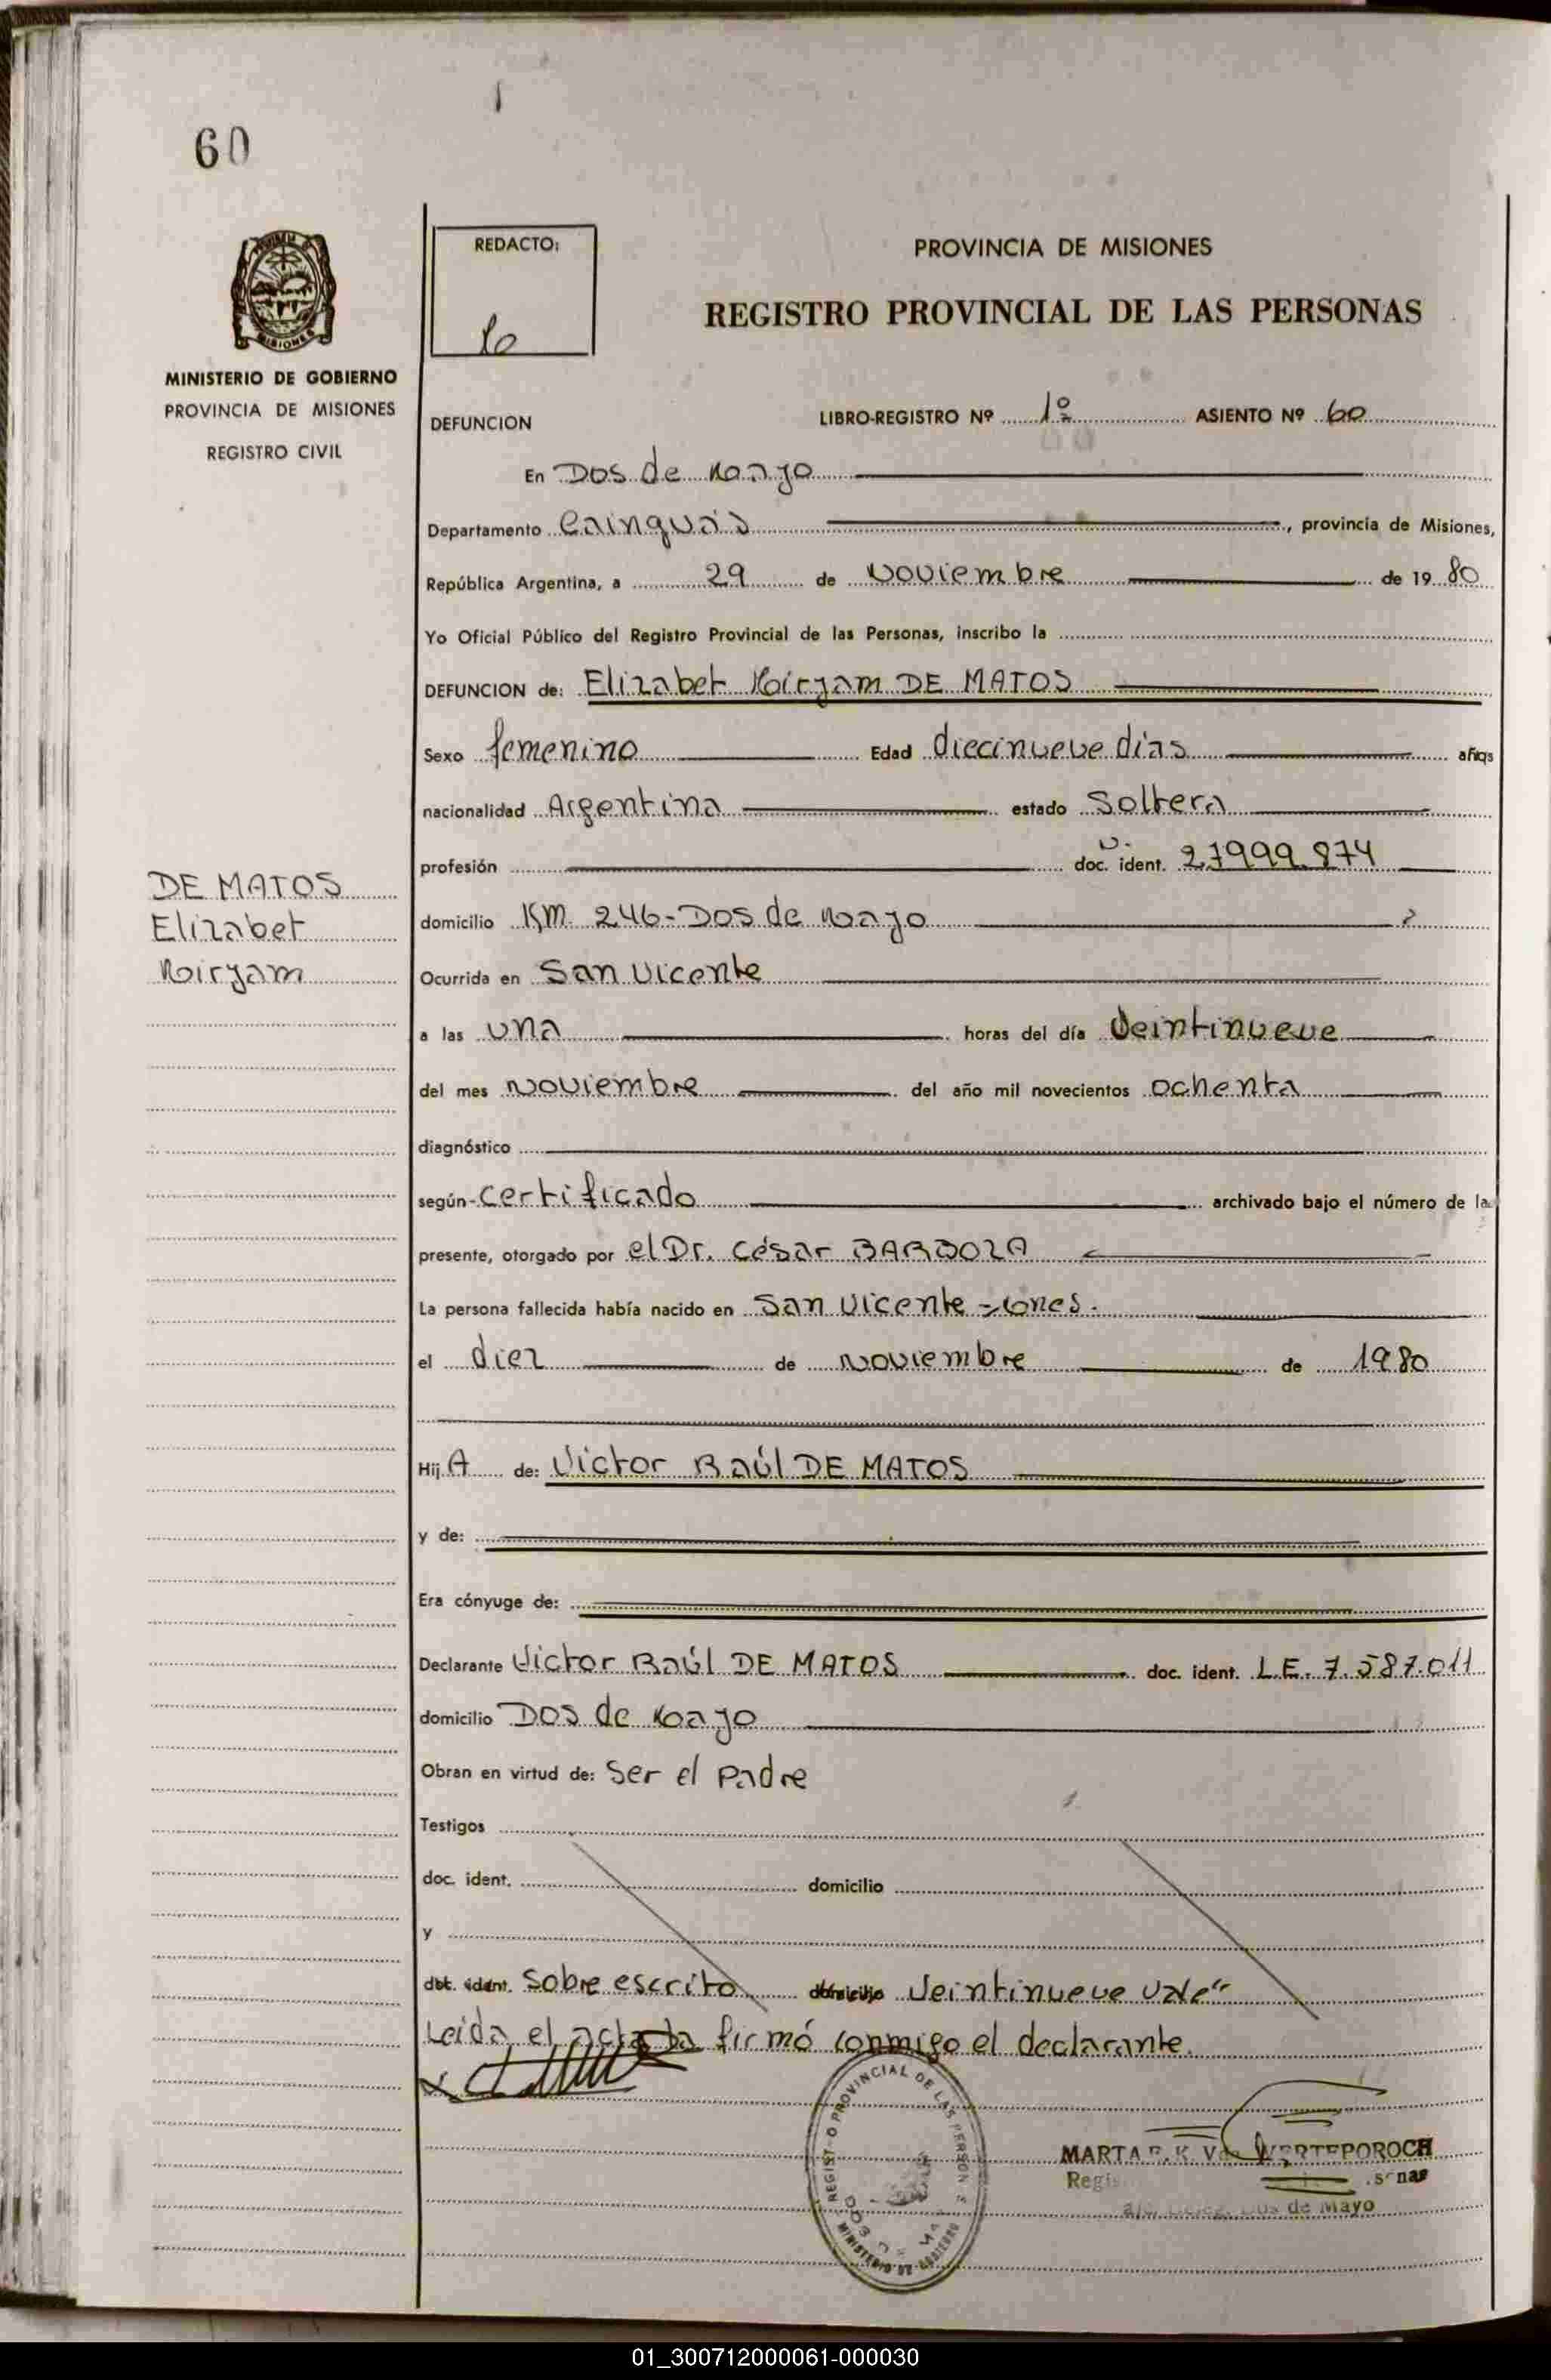 60
REDACTO:
PROVINCIA DE MISIONES
REGISTRO PROVINCIAL DE LAS PERSONAS
MINISTERIO DE GOBIERNO
PROVINCIA DE MISIONES
REGISTRO CIVIL
DEFUNCION LIBRO-REGISTRO Nº 1º ASIENTO Nº 60
En Dos de Mayo
Departamento Cainguás, provincia de Misiones,
República Argentina, a 29 de Noviembre de 1980
Yo Oficial Público del Registro Provincial de las Personas, inscribo la
DEFUNCION de: Elizabet Miryam DE MATOS
Sexo femenino Edad diecinueve días años
nacionalidad Argentina estado Soltera
profesión doc. ident. 27999.874
DE MATOS
Elizabet
Miryam
domicilio Km. 246-Dos de Mayo
Ocurrida en San Vicente
a las una horas del día Veintinueve
del mes Noviembre del año mil novecientos ochenta
diagnóstico
según-certificado archivado bajo el número de la
presente, otorgado por el Dr. César BARBOZA
La persona fallecida había nacido en San Vicente
el diez de Noviembre de 1980
Hij A de: Victor Raúl DE MATOS
y de:
Era cónyuge de:
Declarante Victor Raúl DE MATOS doc. ident. L.E. 7.587.011
domicilio Dos de Mayo
Obran en virtud de: Ser el Padre
Testigos
doc. ident. domicilio
y
doc. ident. Sobre escrito domicilio Veintinueve Vale"
Leída el acta la firmó conmigo el declarante.
REGISTRO PROVINCIAL DE LAS PERSONAS
MINISTERIO DE GOBIERNO
MARTA WERTEPOROCH
Dos de Mayo
01_300712000061-000030